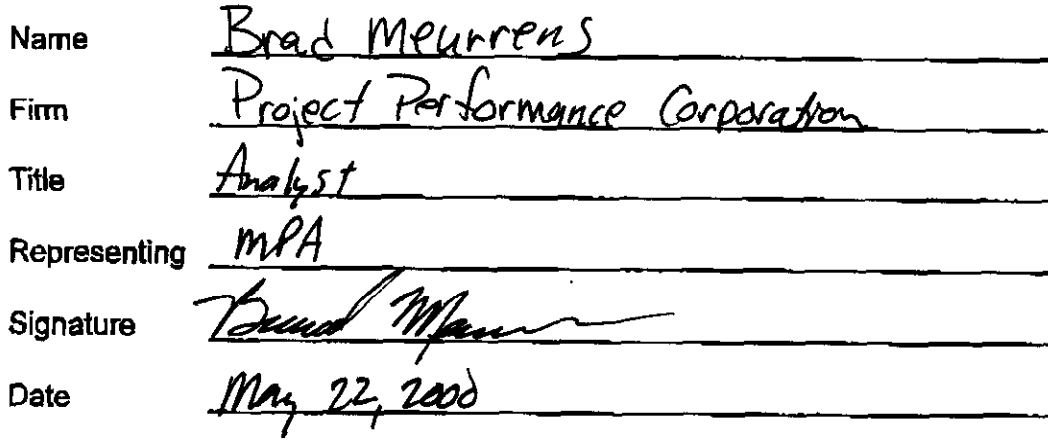 Name Brad Meurrens
Firm Project Performance Corporation
Title Analyst
Representing MPA
Signature Brad Meurrens
Date May 22, 2000